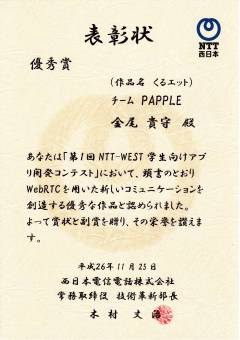 表彰状
NTT
西日本
優秀賞
(作品名 くるエット)
チーム PAPPLE
金尾 貴守 殿
あなたは「第1回 NTT-WEST 学生向けアプ
リ開発コンテスト」において、頭書のとおり
WebRTCを用いた新しいコミュニケーションを
創造する優秀な作品と認められました。
よって賞状と副賞を贈り、その栄誉を讃えま
す。
平成26年11月25日
西日本電信電話株式会社
常務取締役 技術革新部長
木村 丈治